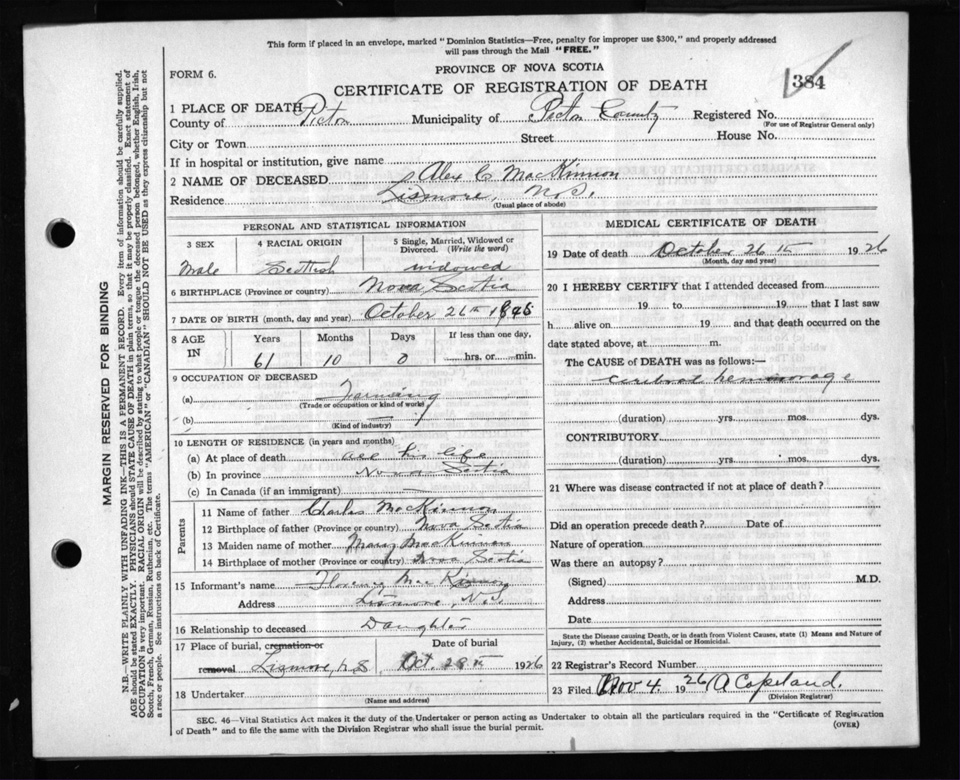 This form if placed in an envelope, marked "Dominion Statistics—Free, penalty for improper use $300," and properly addressed
will pass through the Mail "FREE."
FORM 6.
PROVINCE OF NOVA SCOTIA
CERTIFICATE OF REGISTRATION OF DEATH
384
1 PLACE OF DEATH
County of Pictou Municipality of Pictou County Registered No.
(For use of Registrar General only)
City or Town Street House No.
If in hospital or institution, give name
2 NAME OF DECEASED Alex C MacKinnon
Residence Lismore, N.S.
(Usual place of abode)
PERSONAL AND STATISTICAL INFORMATION
3 SEX 4 RACIAL ORIGIN 5 Single, Married, Widowed or Divorced. (Write the word)
Male Scottish widowed
6 BIRTHPLACE (Province or country) Nova Scotia
7 DATE OF BIRTH (month, day and year) October 26th
8 AGE IN Years Months Days If less than one day,
61 10 0 hrs. or min.
9 OCCUPATION OF DECEASED
(a) Farming
(Trade or occupation or kind of work)
(b)
(Kind of industry)
10 LENGTH OF RESIDENCE (in years and months)
(a) At place of death all his life
(b) In province Nova Scotia
(c) In Canada (if an immigrant) —
Parents
11 Name of father Charles MacKinnon
12 Birthplace of father (Province or country) Nova Scotia
13 Maiden name of mother Mary MacKinnon
14 Birthplace of mother (Province or country) Nova Scotia
15 Informant's name MacKinnon
Address Lismore, N.S.
16 Relationship to deceased Daughter
17 Place of burial, cremation or Date of burial
removal Lismore, N.S. Oct 28th 1926
18 Undertaker
(Name and address)
MEDICAL CERTIFICATE OF DEATH
19 Date of death October 26th 1926
(Month, day and year)
20 I HEREBY CERTIFY that I attended deceased from
19 to 19 that I last saw
h alive on 19 and that death occurred on the
date stated above, at m.
The CAUSE of DEATH was as follows:—
cerebral hemmorage
(duration) yrs. mos. dys.
CONTRIBUTORY
(duration) yrs. mos. dys.
21 Where was disease contracted if not at place of death?
Did an operation precede death? Date of
Nature of operation
Was there an autopsy?
(Signed) M.D.
Address
Date
State the Disease causing Death, or in death from Violent Causes, state (1) Means and Nature of
Injury, (2) whether Accidental, Suicidal or Homicidal.
22 Registrar's Record Number
23 Filed Nov 4. 1926 A Copeland.
(Division Registrar)
SEC. 46—Vital Statistics Act makes it the duty of the Undertaker or person acting as Undertaker to obtain all the particulars required in the "Certificate of Registration
of Death" and to file the same with the Division Registrar who shall issue the burial permit.
(OVER)
MARGIN RESERVED FOR BINDING
N.B.—WRITE PLAINLY WITH UNFADING INK—THIS IS A PERMANENT RECORD. Every item of information should be carefully supplied.
AGE should be stated EXACTLY. PHYSICIANS should STATE CAUSE OF DEATH in plain terms, so that it may be properly classified. Exact statement of
OCCUPATION is very important. RACIAL ORIGIN will be described by stating to what people or tongue the deceased person belonged, whether English, Irish,
Scotch, French, German, Russian, Ruthenian, etc. The terms "AMERICAN" or "CANADIAN" SHOULD NOT BE USED as they express citizenship but not
a race or people. See instructions on back of Certificate.